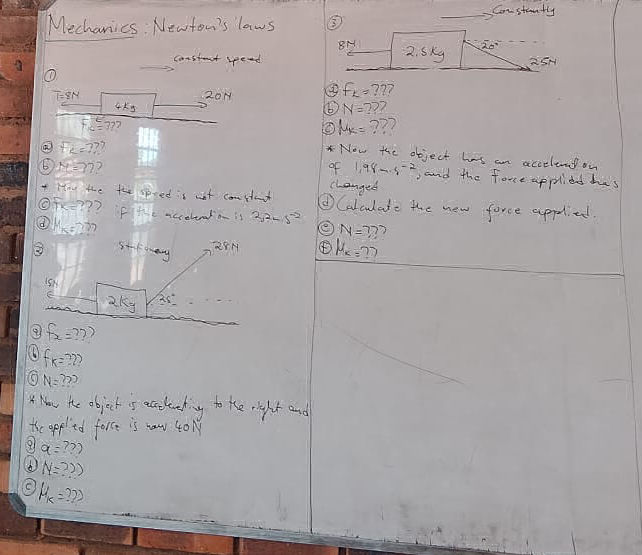 Mechanics: Newton's laws
→ constant speed
①
T=8N
4kg
20N
fk=???
ⓐ fk=???
ⓑ N=???
* Now the the speed is not constant
ⓒ fk=??? if the acceleration is 2,2m.s-2
ⓓ Mk=???
②
stationary
28N
15N
2kg
35°
ⓐ fx=???
ⓑ fk=???
ⓒ N=???
* Now the object is accelerating to the right and
the applied force is now 40N
ⓐ a=???
ⓑ N=???
ⓒ Mk=???
③
→ Constantly
8N
2.5kg
20°
25N
ⓐ fk=???
ⓑ N=???
ⓒ Mk=???
* Now the object has an acceleration
of 1,98m.s-2, and the force applied has
changed
ⓓ Calculate the new force applied.
ⓔ N=???
ⓕ Mk=??